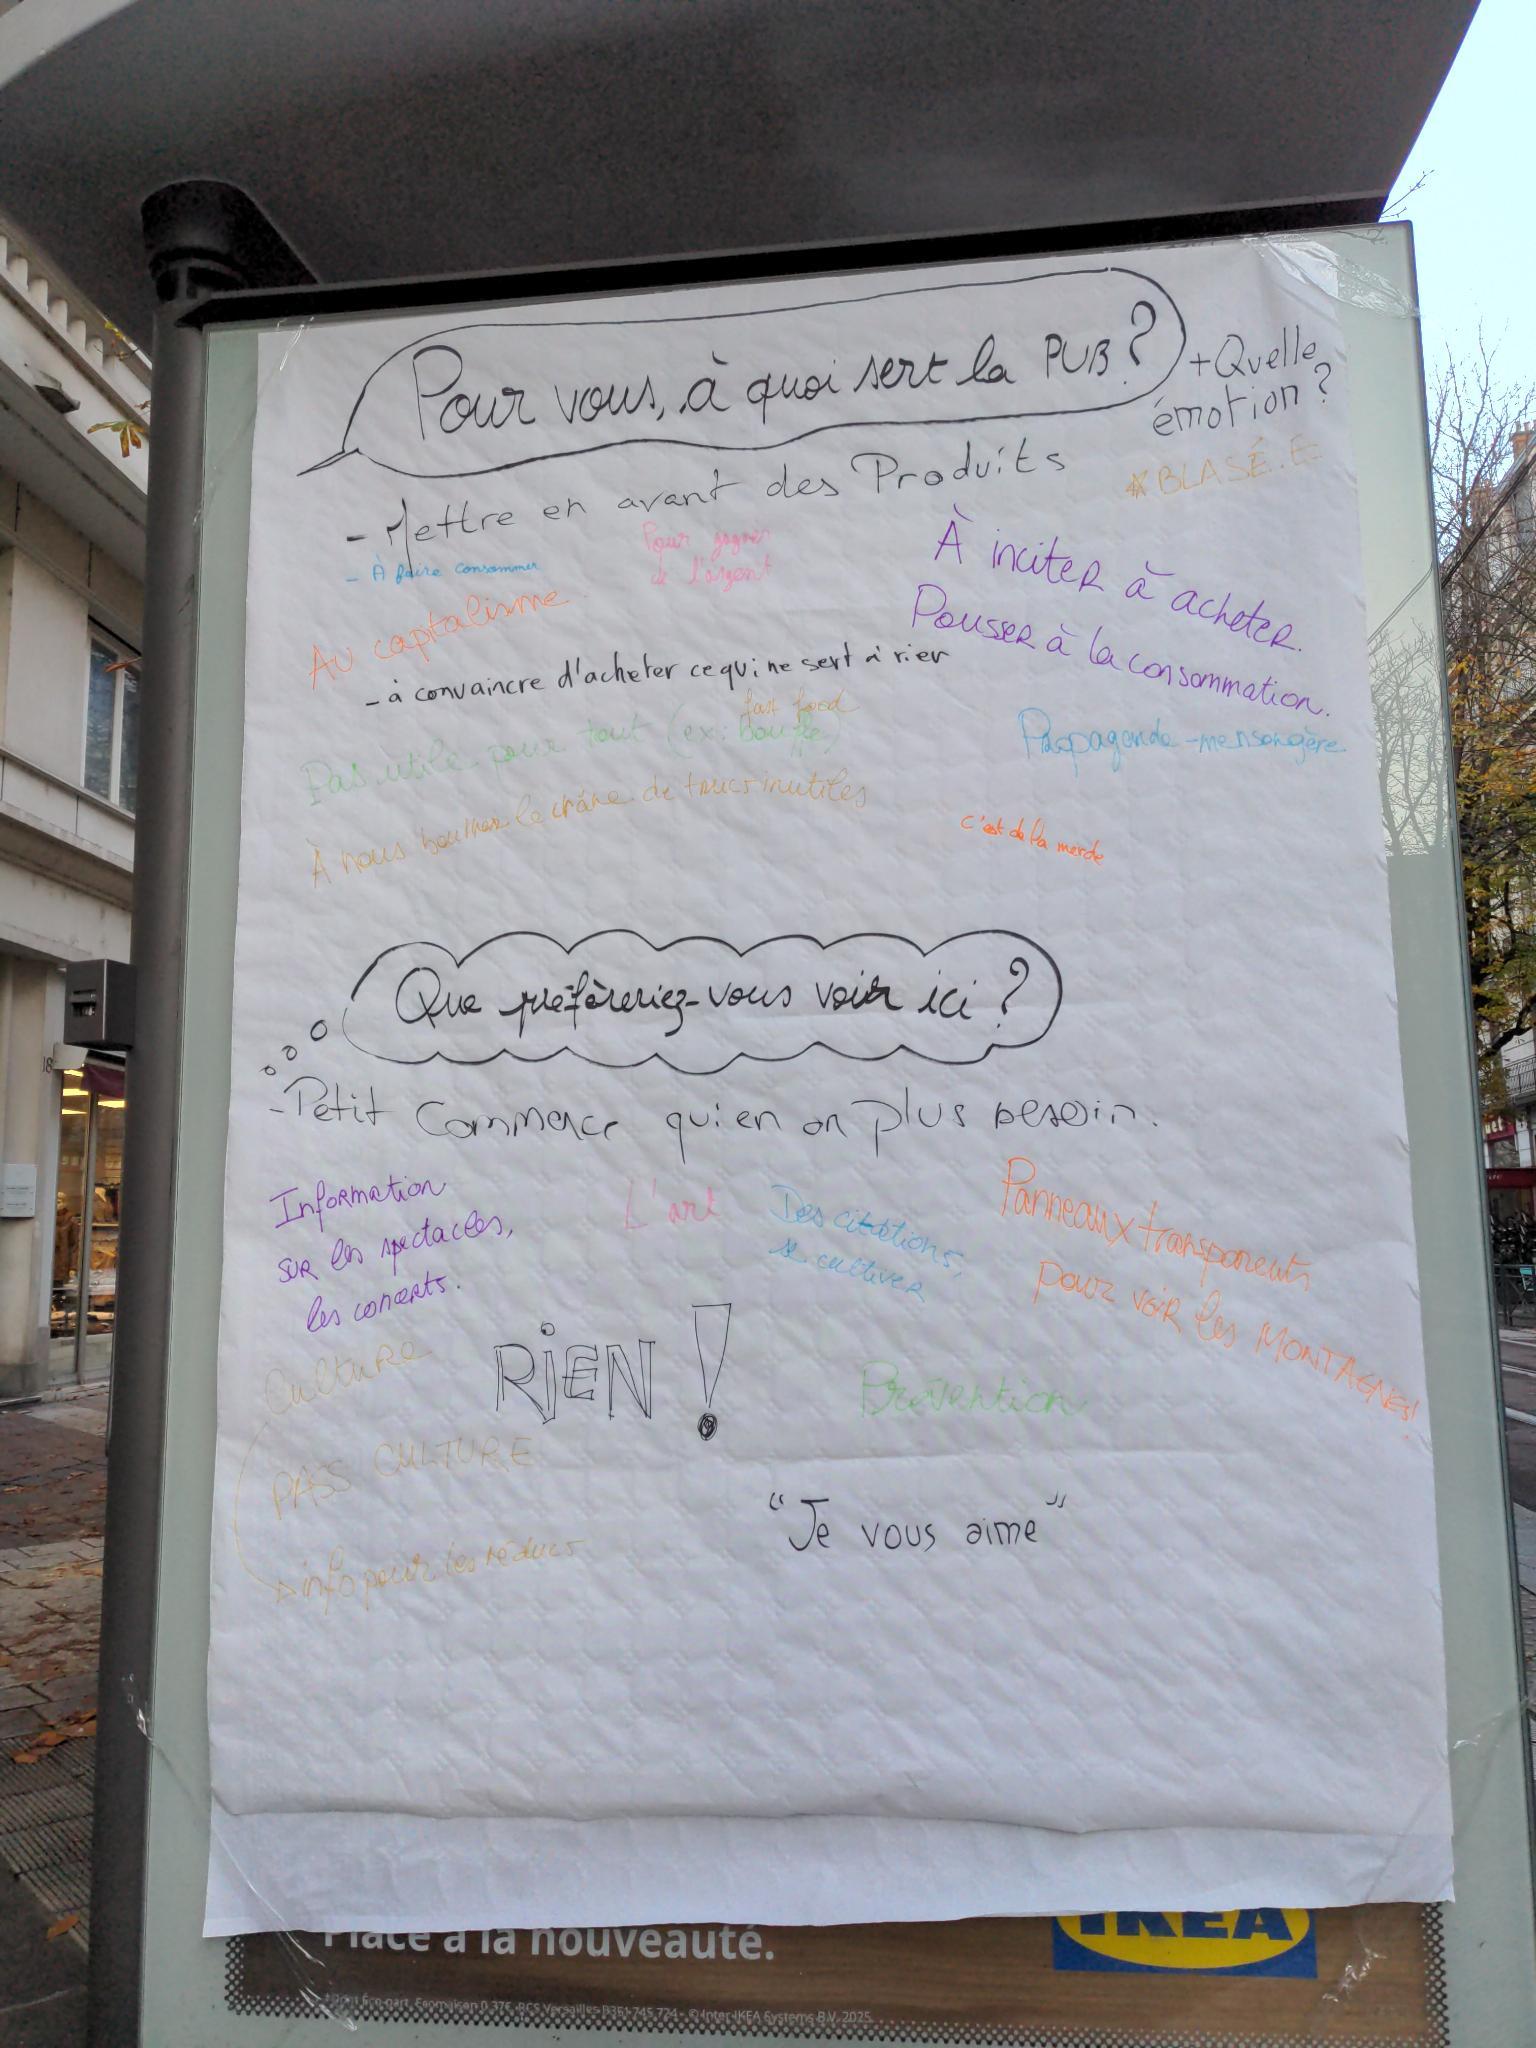 Pour vous, à quoi sert la PUB ?
+ Quelle
émotion ?
* BLASÉ.E
- Mettre en avant des Produits
- À faire consommer
Pour gagner
de l'argent
À inciter à acheter.
Pousser à la consommation.
Au capitalisme
- à convaincre d'acheter ce qui ne sert à rien
fast food
Pas utile pour tout (ex: bouffe)
Propagande - mensongère
À nous bourrer le crâne de trucs inutiles
c'est de la merde
Que préfèreriez-vous voir ici ?
- Petit Commerce qui en on plus besoin.
Information
sur les spectacles,
les concerts.
L'art
Des citations,
se cultiver
Panneaux transparents
pour voir les MONTAGNES!
RIEN !
Culture
Prévention
PASS CULTURE
info pour les réducs
"Je vous aime"
Place à la nouveauté.
IKEA
RCS Versailles B351 745 724 - © Inter IKEA Systems B.V. 2025